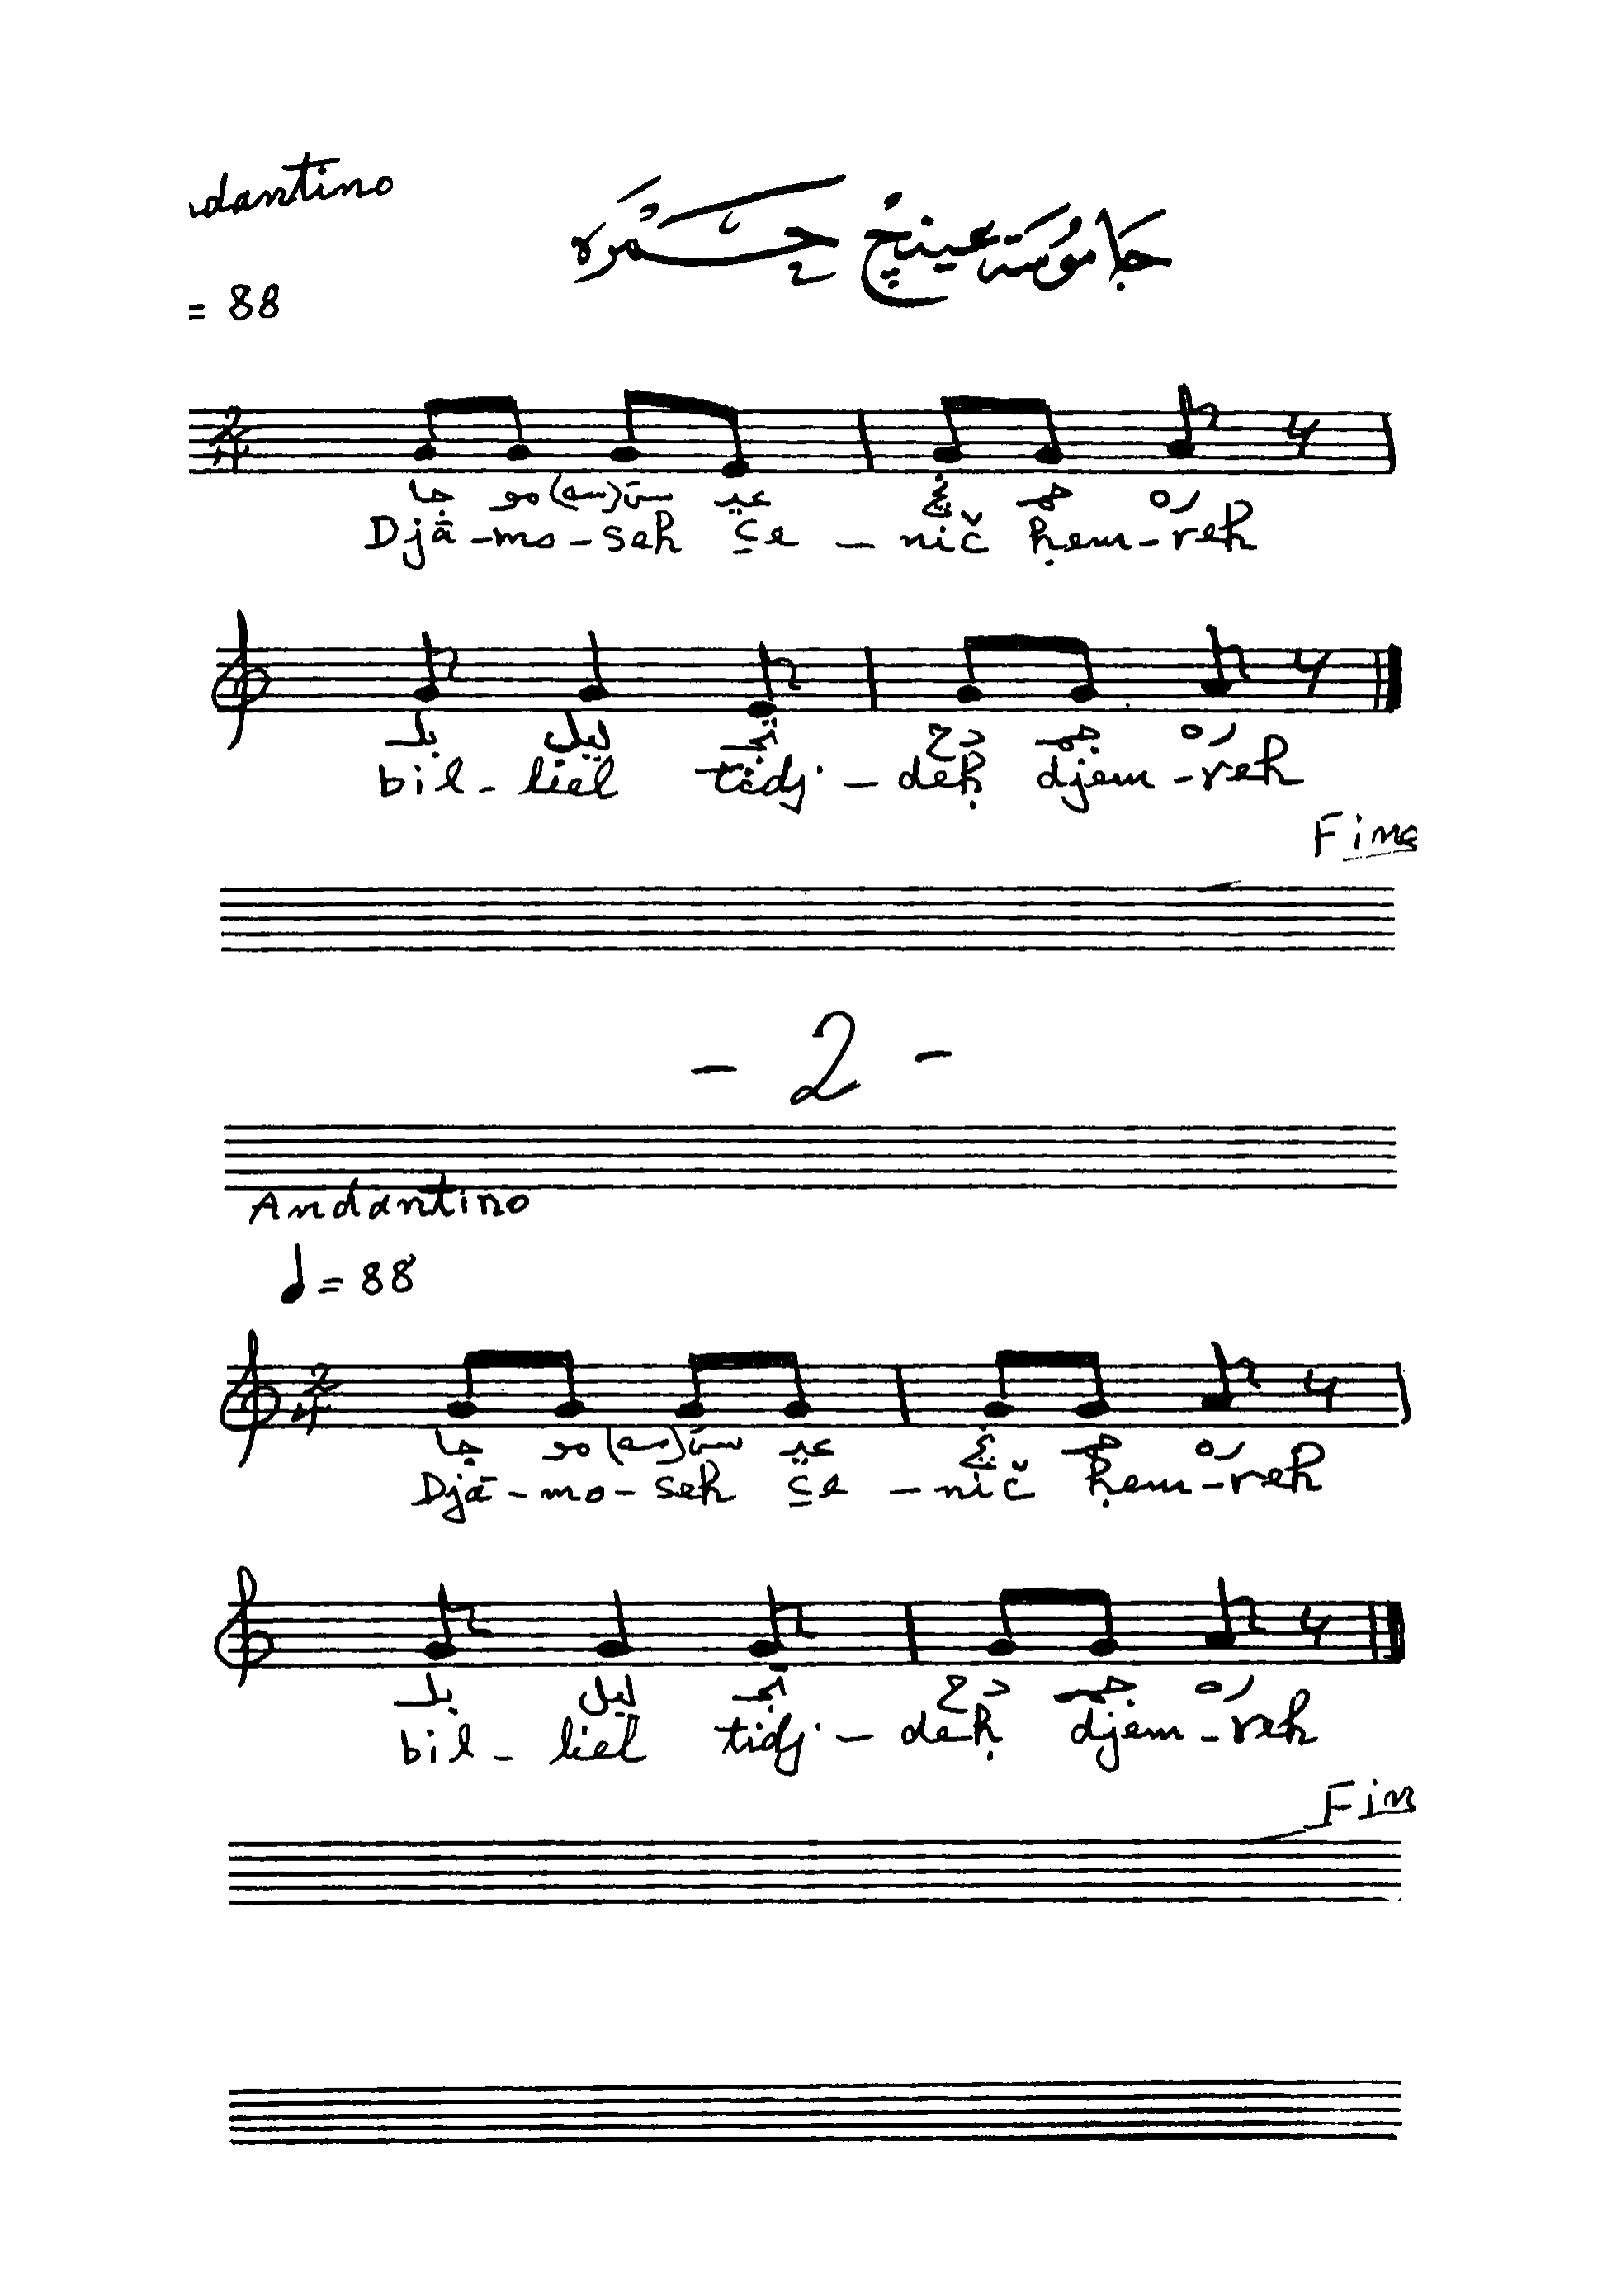 dantino
جَامُوسَة عينچ حَمْرَه
= 88
2
4
جا مو (سه) سَة عيـ نچ حمـ ره
Djā-mo-seh c̱e - nič ḥem-reh
بلـ ليل تجـ دح جمـ ره
bil-liel tidj-deḥ djem-reh
Fine
- 2 -
Andantino
♩ = 88
2
4
جا مو (سه) سَة عيـ نچ حمـ ره
Djā-mo-seh c̱e - nič ḥem-reh
بلـ ليل تجـ دح جمـ ره
bil-liel tidj-deḥ djem-reh
Fin